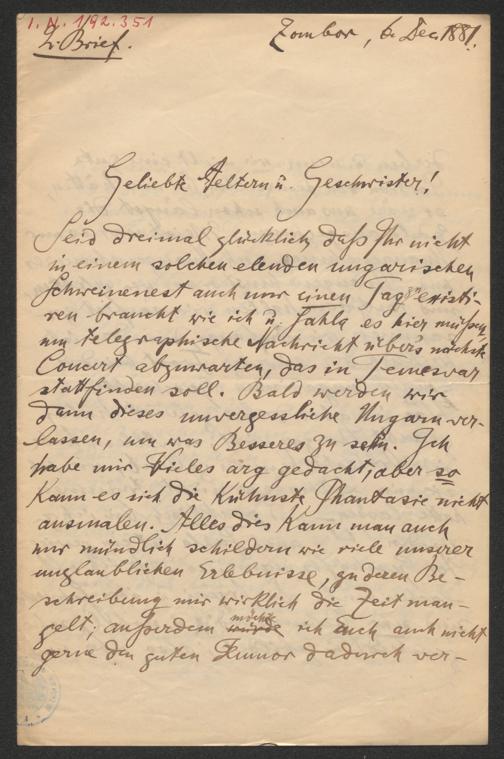 I.N. 192.351
2. Brief.
Zombor, 6. Dec. 1881.
Geliebte Aeltern u. Geschwister!
Seid dreimal glücklich, daß Ihr nicht
in einem solchen elenden ungarischen
Schweinenest auch nur einen Tag existi-
ren braucht wie ich u. es hier müssen,
um telegraphische Nachricht über's nächste
Concert abzuwarten, das in Temesvar
stattfinden soll. Bald werden wir
dann dieses unvergessliche Ungarn ver-
lassen, um was Besseres zu sehn. Ich
habe mir Vieles arg gedacht, aber so
kann es sich die kühnste Phantasie nicht
ausmalen. Alles dies kann man auch
nur mündlich schildern wie viele unserer
unglaublichen Erlebnisse, zu deren Be-
schreibung mir wirklich die Zeit man-
gelt; außerdem würde möchte ich Euch auch nicht
gerne den guten Humor dadurch ver-